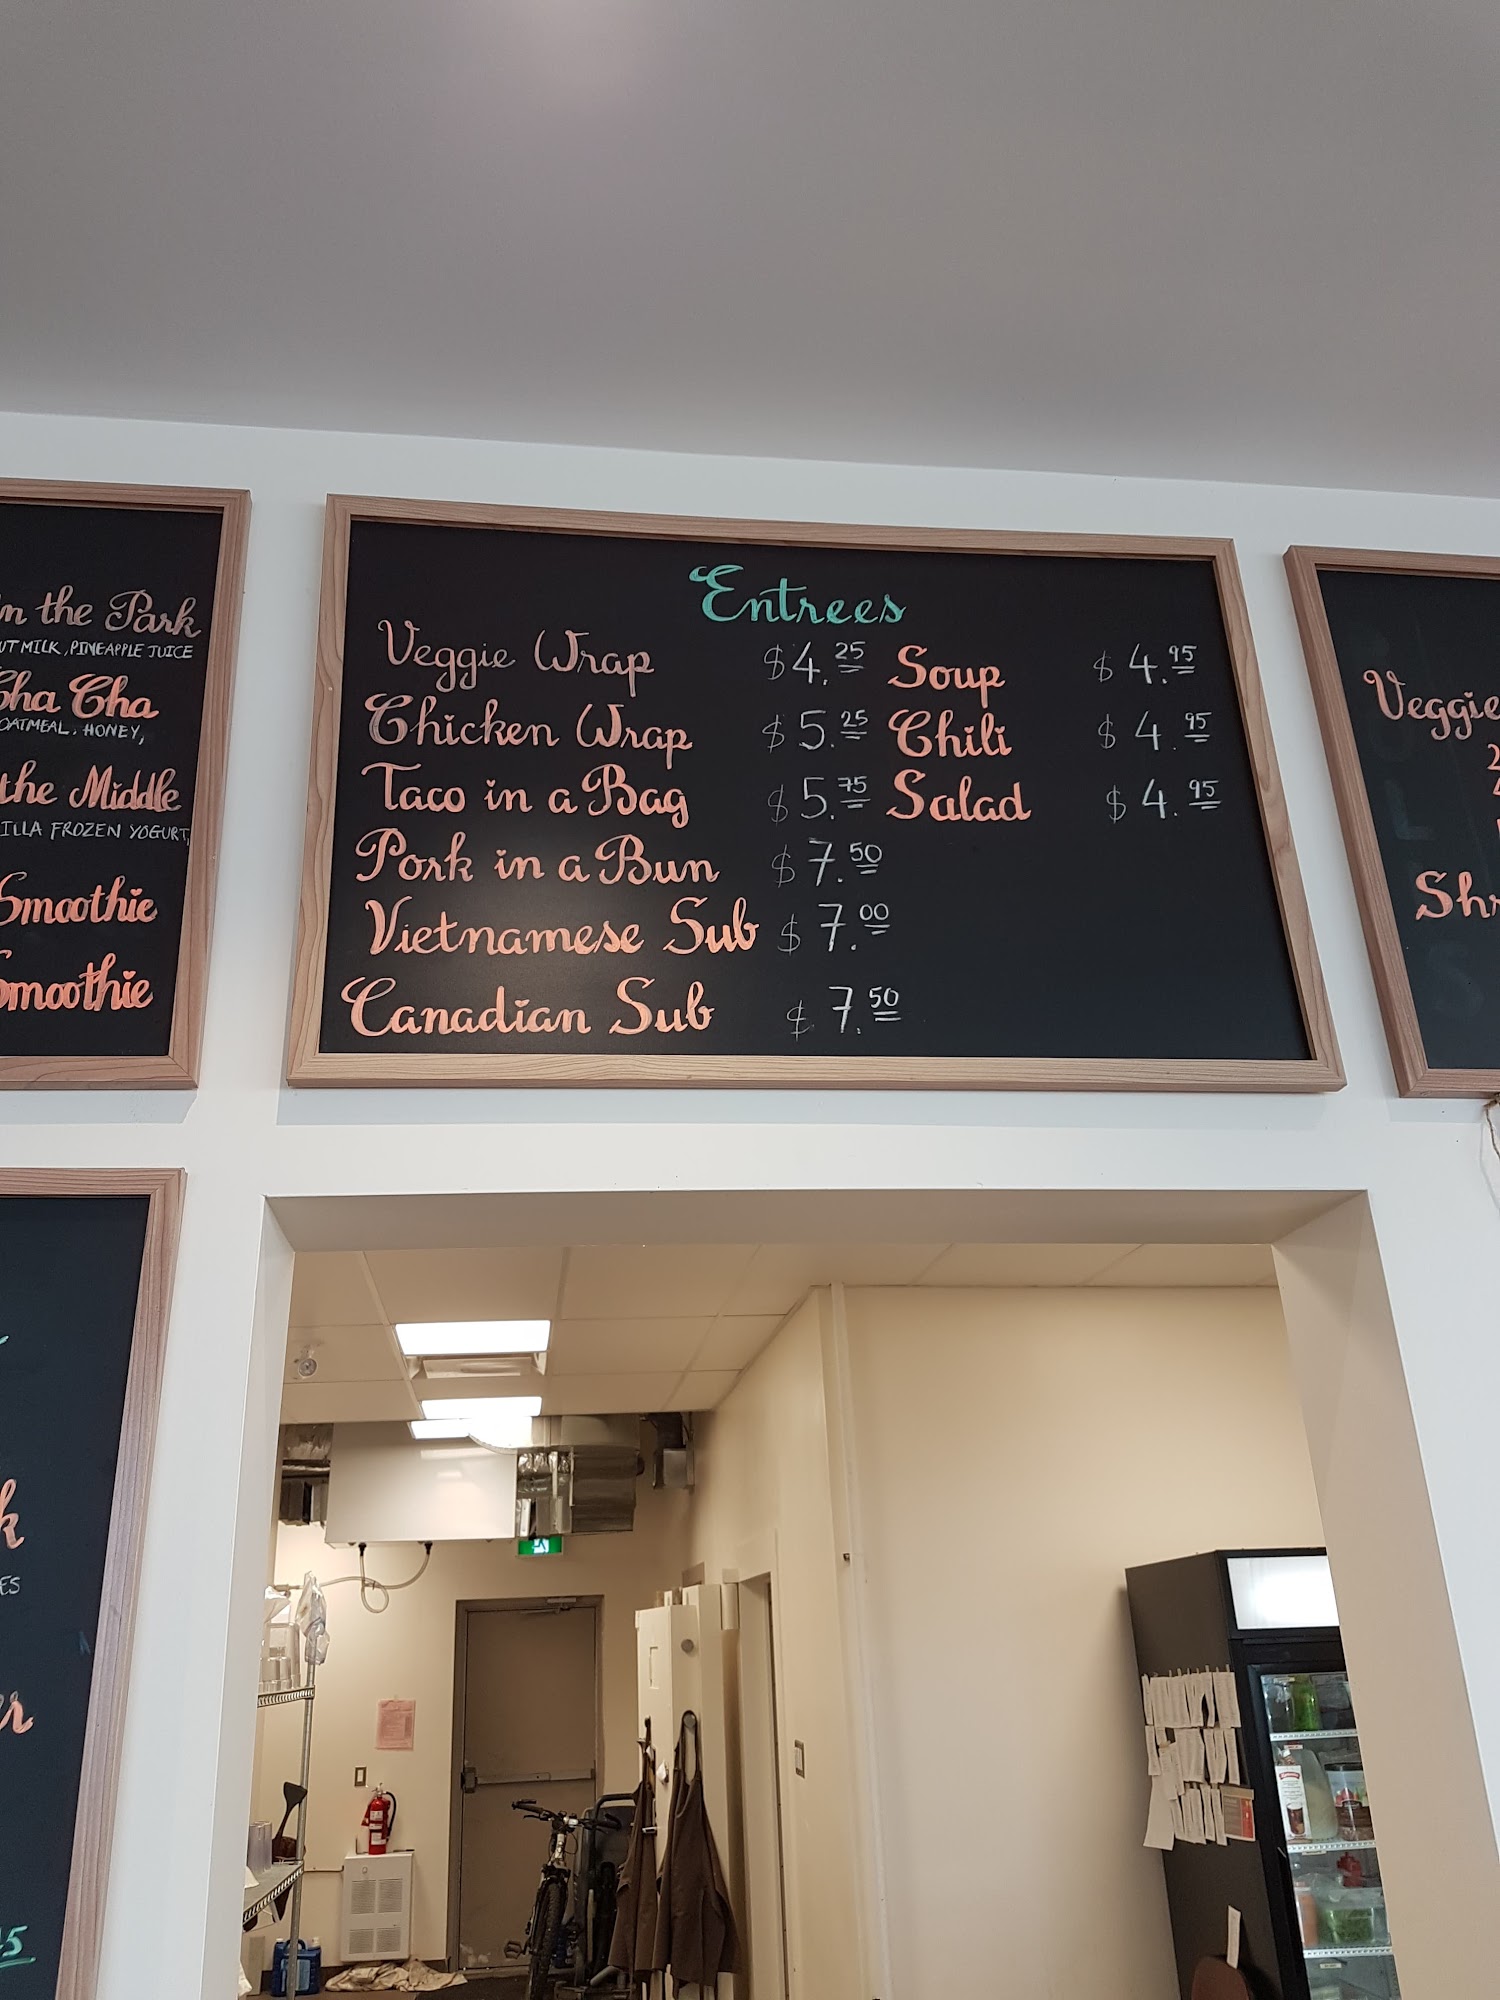 the Park
MILK, PINEAPPLE JUICE
Cha
OATMEAL, HONEY,
the Middle
FROZEN YOGURT,
Smoothie
Smoothie
Entrees
Veggie Wrap $4.25
Chicken Wrap $5.25
Taco in a Bag $5.75
Pork in a Bun $7.50
Vietnamese Sub $7.00
Canadian Sub $7.50
Soup $4.95
Chili $4.95
Salad $4.95
Veggie